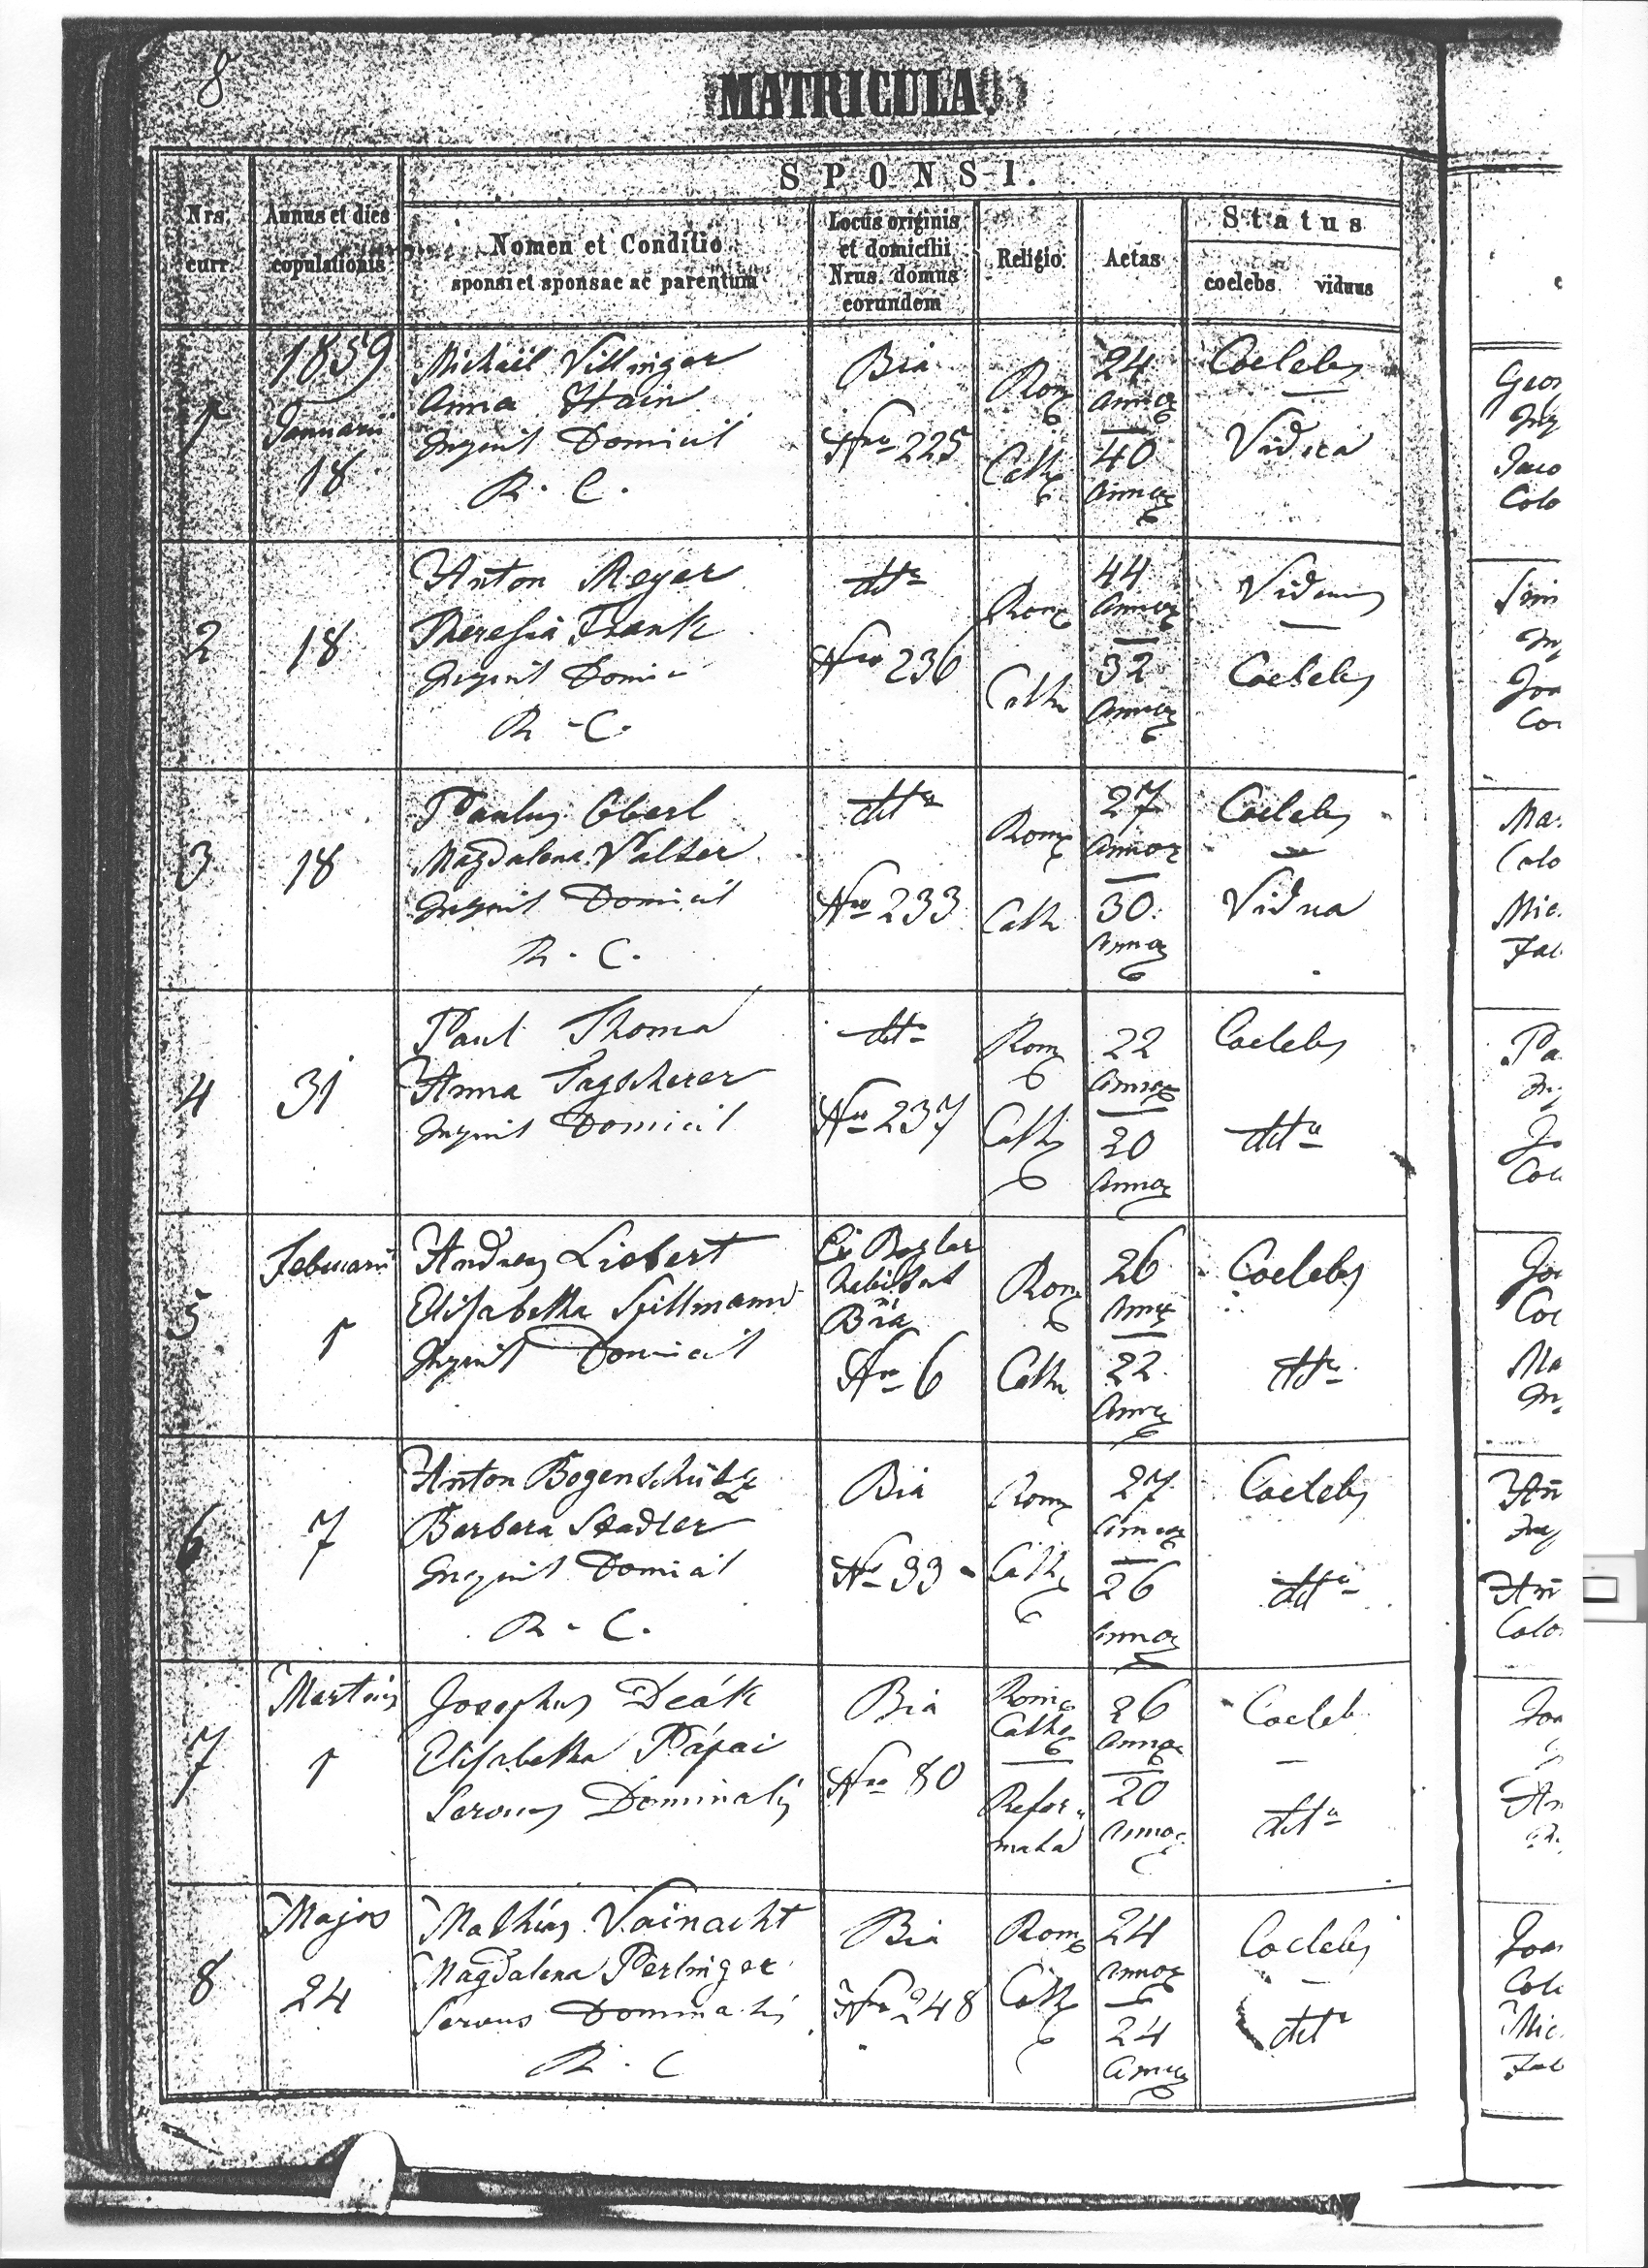 8
MATRICULA
SPONSI.
Nrs. curr.
Annus et dies copulationis
Nomen et Conditio
sponsi et sponsae ac parentum
Locus originis
et domicilii
Nrus. domus
eorundem
Religio
Aetas
Status
coelebs viduus
1
1859
Januarii
18
Michaël Villinger
Anna Hain
Inquil Domicil
R. C.
Bia
Nro 225
Rom
Cath
24
annor
40
annor
Coelebs
Vidua
2
18
Anton Meyer
Theresia Frank
Inquil Domic
R - C.
dtto
Nro 236
Rom
Cath
44
annor
32
annor
Viduus
Coelebs
3
18
Paulus Oberl
Magdalena Valser
Inquil Domicil
R. C.
dtto
Nro 233
Rom
Cath
27
annor
30
annor
Coelebs
Vidua
4
31
Paul Thoma
Anna Tagscherer
Inquil Domicil
dtto
Nro 237
Rom
Cath
22
annor
20
annor
Coelebs
dtto
5
Februarii
1
Andreas Liebert
Elisabetha Spillmann
Inquil Domicil
Ex
habitat
Bia
Nro 6
Rom
Cath
26
annor
22
annor
Coelebs
dtto
6
7
Anton Bogenschütz
Barbara Stadler
Inquil Domicil
R - C.
Bia
No 93
Rom
Cath
27
annor
26
annor
Coelebs
dtto
7
Martius
1
Josephus Deák
Elisabetha Pápai
Servus Dominalis
Bia
Nro 80
Rom
Cath
Refor
mata
26
annor
20
annor
Coeleb
dtto
8
Majus
24
Mathias Vainacht
Magdalena Perlinger
Servus Dominalis
R. C
Bia
Nro 248
Rom
Cath
24
annor
24
annor
Coelebs
dtto